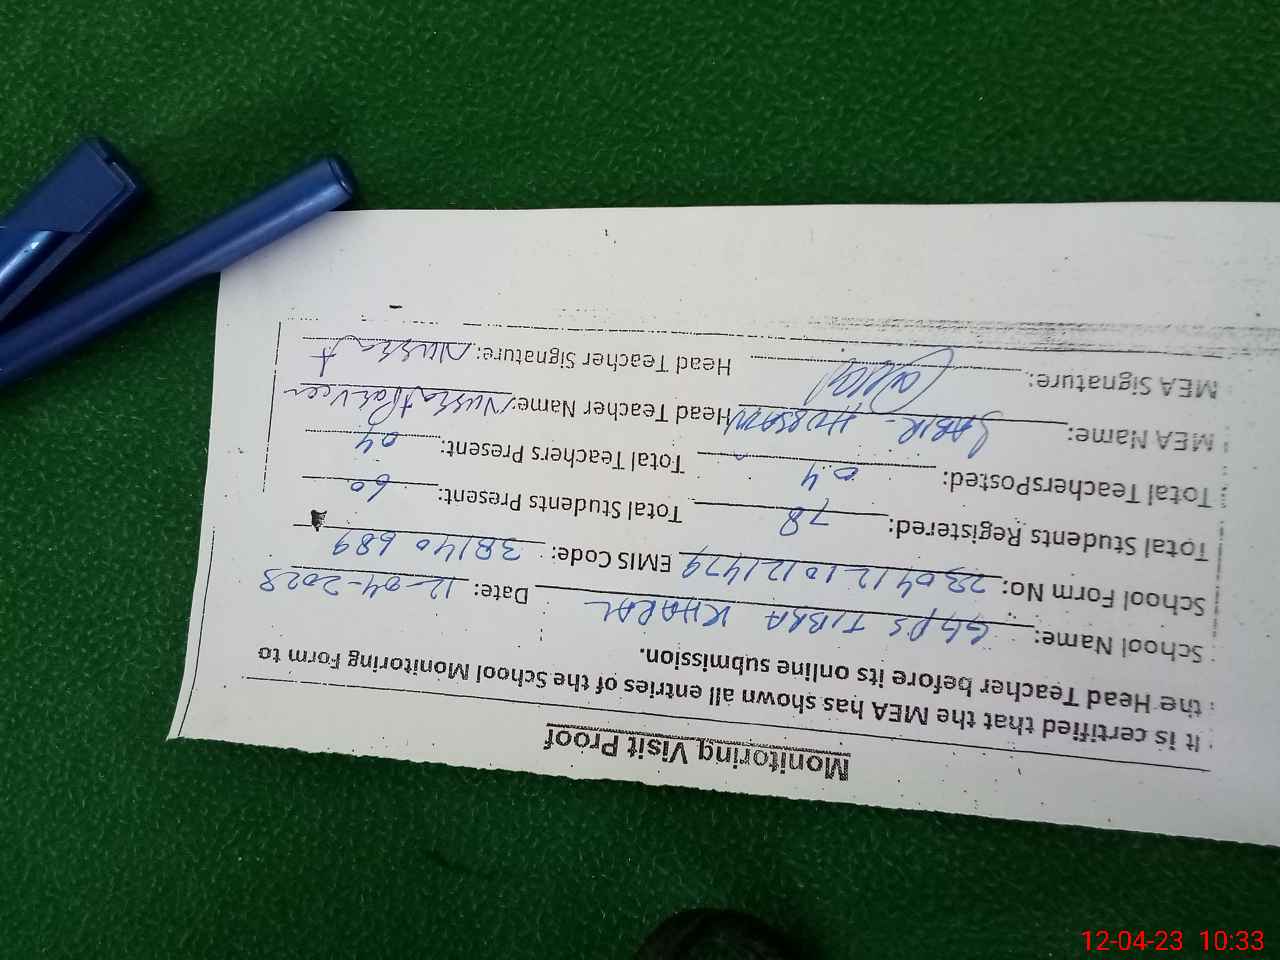 Monitoring Visit Proof
It is certified that the MEA has shown all entries of the School Monitoring Form to
the Head Teacher before its online submission.
School Name: GGPS TIBBA KHARAL Date: 12-04-2023
School Form No: 23041210121479 EMIS Code: 38140689
Total Students Registered: 78 Total Students Present: 60
Total TeachersPosted: 04 Total Teachers Present: 04
MEA Name: SABIR HUSSAIN Head Teacher Name: Nusrat Parveen
MEA Signature: Head Teacher Signature: Nusrat
12-04-23 10:33